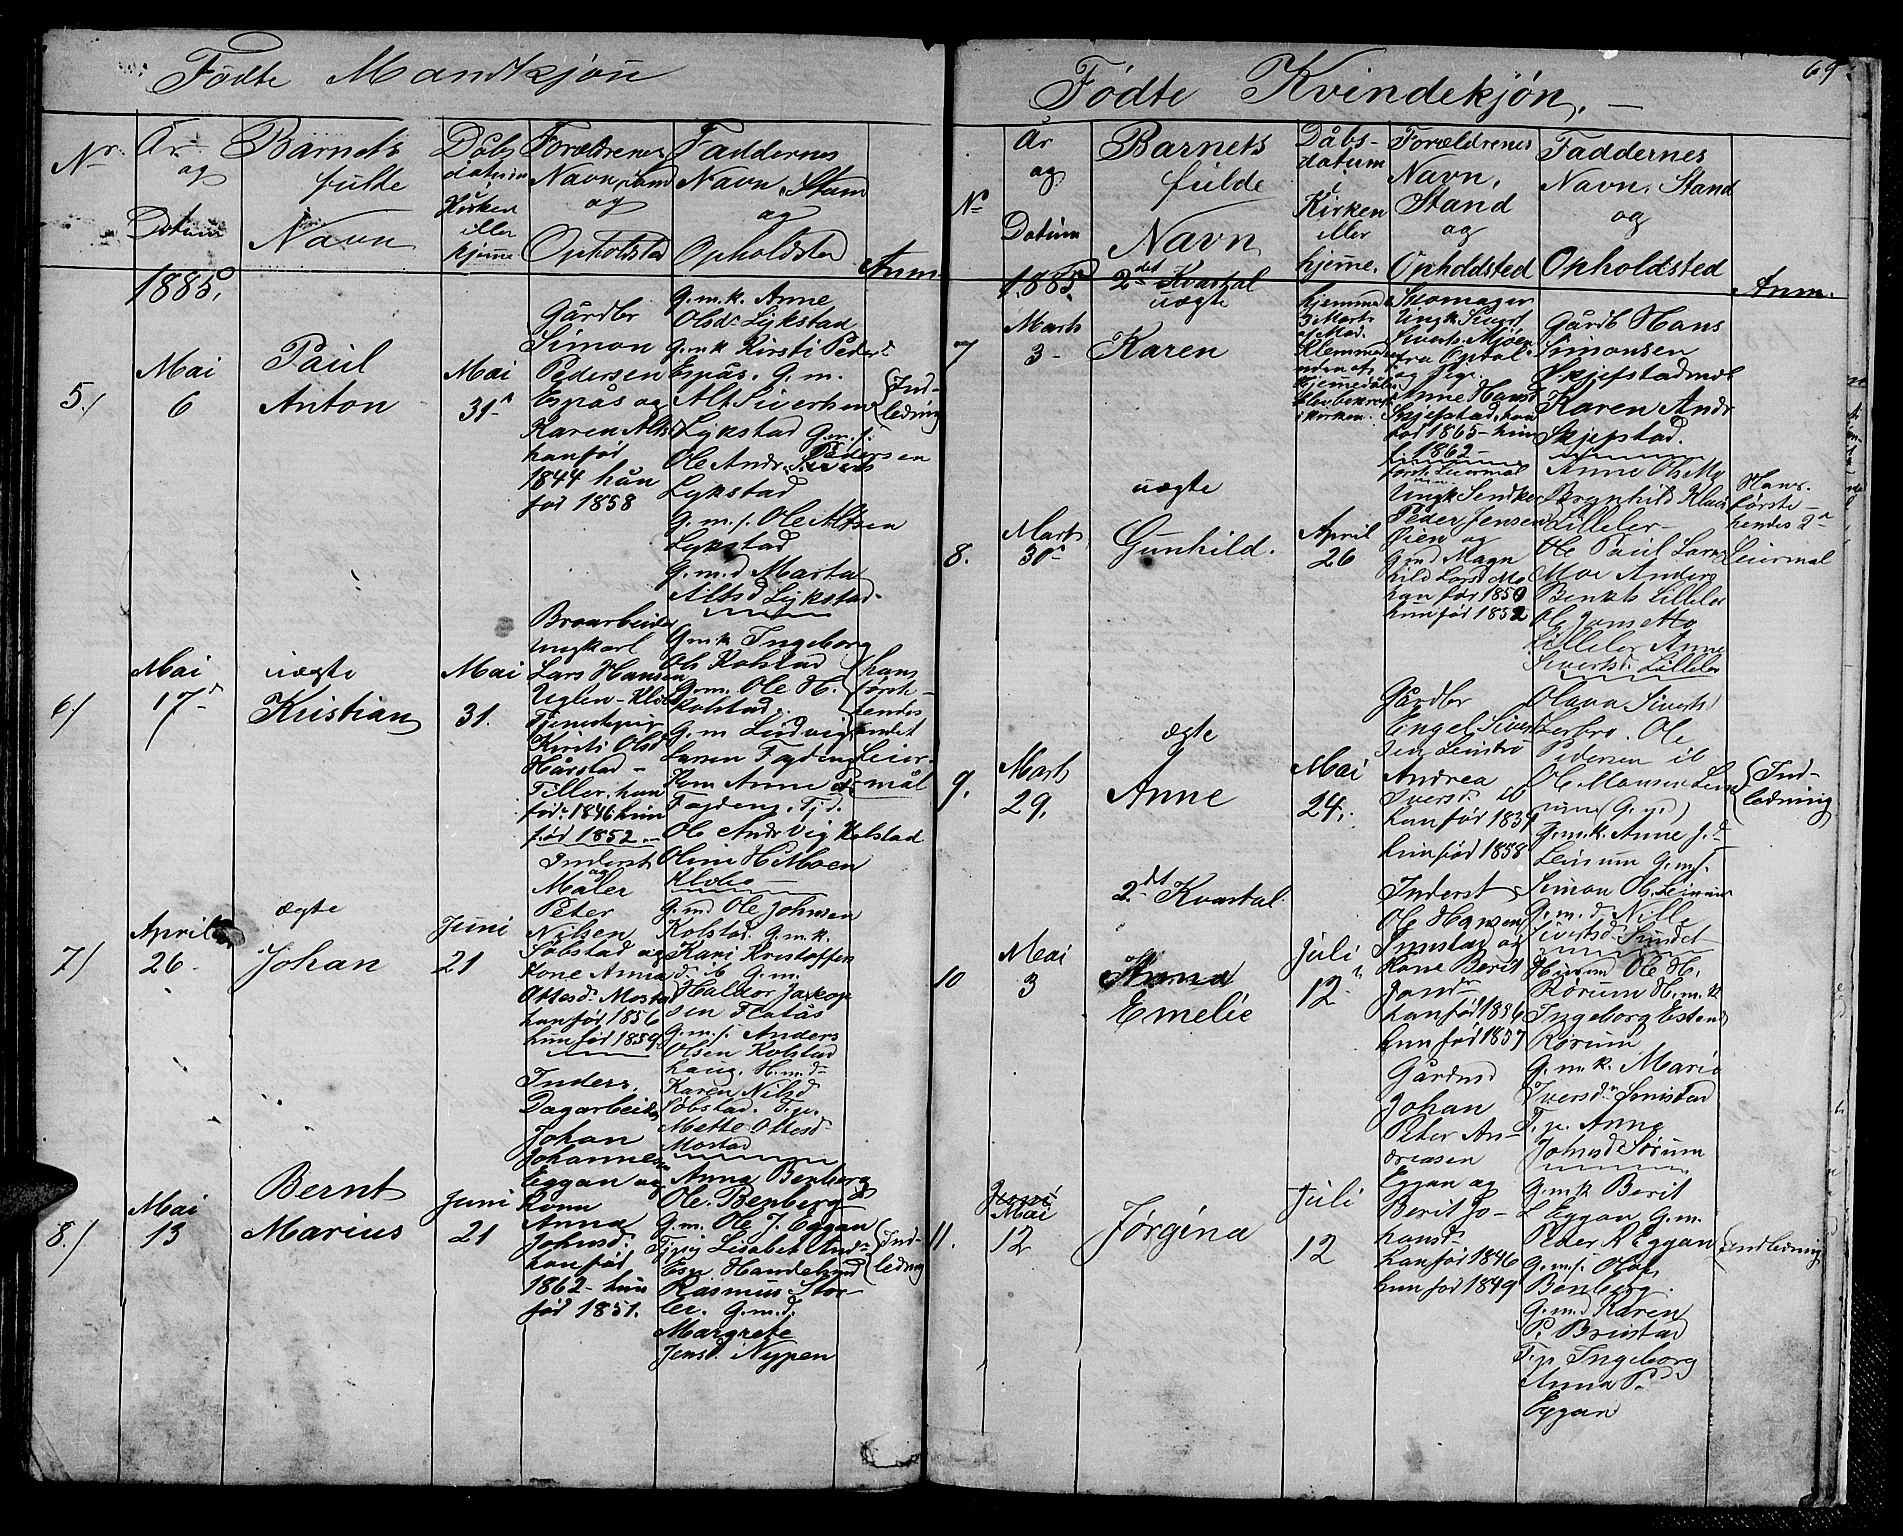 Fødte Mandkjøn
Nr.
År og Datum
Barnets fulde Navn
Dåbsdatum i Kirken eller hjemme
Forældrenes Navn, Stand og Opholdsted
Faddernes Navn, Stand og Opholdsted
Anm.
1885.
5.)
Mai
6
Paul
Anton
Mai
31
Gårdbr
Simon
Pedersen
Espås og
Karen Alts
han fød
1844 hun
fød 1858
G.m.k. Anne
Olsd. Lykstad
G.m.k Kirsti Peders
Espås. G.m.
Alt Sivertsen
Lykstad G.m.f.
Ole Andr. Pedersen
Lykstad
G.m.f. Ole Altsen
Lykstad
G.m.d Marta
Altsd Lykstad
Ind-
ledning
6)
Mai
17
uægte
Kristian
Mai
31.
Broarbeider
Ungkarl
Lars Hansen
Uglen - Klæbo
Tjenestepig
Kirsti Olsd
Hårstad -
Tiller, han
fød: 1846 hun
fød 1852.
G.m.k Ingeborg
Ols Kolstad
G.m. Ole H.
Kolstad.
G.m Ludvig
Larsen
Kom Anne
Ole Andr Vig Kolstad
Oline H Moen
Klæbo
hans
først
hendes
andet
Leier-
mål
7)
April
26
ægte
Johan
Juni
21
Inderst
og
Maler
Peter
Nilsen
Søbstad og
Kone Anna
Ottesd. Mosta
han fød 1856
hun fød 1859
G.m.d Ole Johnsen
Kolstad. G.m.k.
Kari Kristoffers
d. ib G.m.
Haldor Jakop
sen Flatås
G.m.f. Anders
Olsen Kolstad
haug. H.m.d
Karen Nilsd
Søbstad. T.p.
Mette Ottesd
Mostad
8)
Mai
13
Bernt
Marius
Juni
21
Inders.
Dagarbeider
Johan
Johannes
Eggan og
Kona
Anna
Johnsd.
han fød
1862 - hun
fød 1851.
Anna Benberg
Ole. Benberg
G.m. Ole J. Eggan
Tjpig Lisabet And
Esp Handelsmd
Rasmus Stor-
ler. G.m.d.
Margrete
Jensd. Nypen
Ind-
ledning
69
Fødte Kvindekjøn.
Nr
År og Datum
Barnets fulde Navn
Dåbsdatum i Kirken eller hjemme.
Forældrenes Navn, Stand og Opholdsted
Faddernes Navn, Stand og Opholdsted
Anm.
1885.
2det Kvartal
7
Marts
3
uægte
Karen
hjemmedø
3 Marts
af Mad.
Klemmetsen
hjemedåben
i kirken.
Skomager
Ungk Sivert
Siverts. Mjøen
fra Opdal
og Pige
Anne Hansd
Skjefstad, han
fød 1865 - hun
f. 1862 -
først Leiermål
Gårdb Hans
Simonsen
Skjefstadmoe
Karen Andr
Skjefstad.
8.
Marts
30
uægte
Gunhild.
April
26
Ungk Sendker
Peder Jensen
Øien og
Gmd Magn
hild Larsd Mo
han fød 1850
hun fød 1852
Anne Ols Mo
Bronhild Klas
Lilleler
Ole Paul Lars
Moe Anders
Benkts Lilleler
Ole Jonsetto
Lilleler Anne
Sivertsd. Lilleler
Hans
første
hendes 2
Leiermål
9.
Marts
29.
ægte
Anne
Mai
24.
Gårdbr
Engel Sivert
sen Leinstrø
Andrea
Iversd.
han fød 1834
hun fød 1858
Olava Siverts
Lerbro. Ole
Pedersen ib
Ole Monsen Lein
num (G.m)
G.m.k. Anne J.d
Leinum G.m.f.
Simon Ols. Leinum
G.m.d. Nille
Sivertsd. Sundet
Ind-
ledning
2det Kvartal
10
Mai
3
Anna
Emelie
Juli
12
Inderst
Ole Hansen
og
Kone Berit
Jonsd
han fød 1856
hun fød 1857
Husmd Ole H.
Rørum H.m.k
Ingeborg Estens
Rørum
G.m.k. Marie
Iversd
T.p. Anne
Johnsd Sørum
11.
Juni
Mai
12
Jørgina
Juli
12
Gårdmd
Johan
Peter An-
dreasen
Eggan og
Berit Jo-
hansd.
han fød 1846
hun fød 1849
G.m.k Berit
L Eggan G.m.
Peder R Eggan
G.m.f. Olaf
Benberg.
G.m.d Karen
P. Brinstad
T.p Ingeborg
Anna P.
Eggan
Indledning